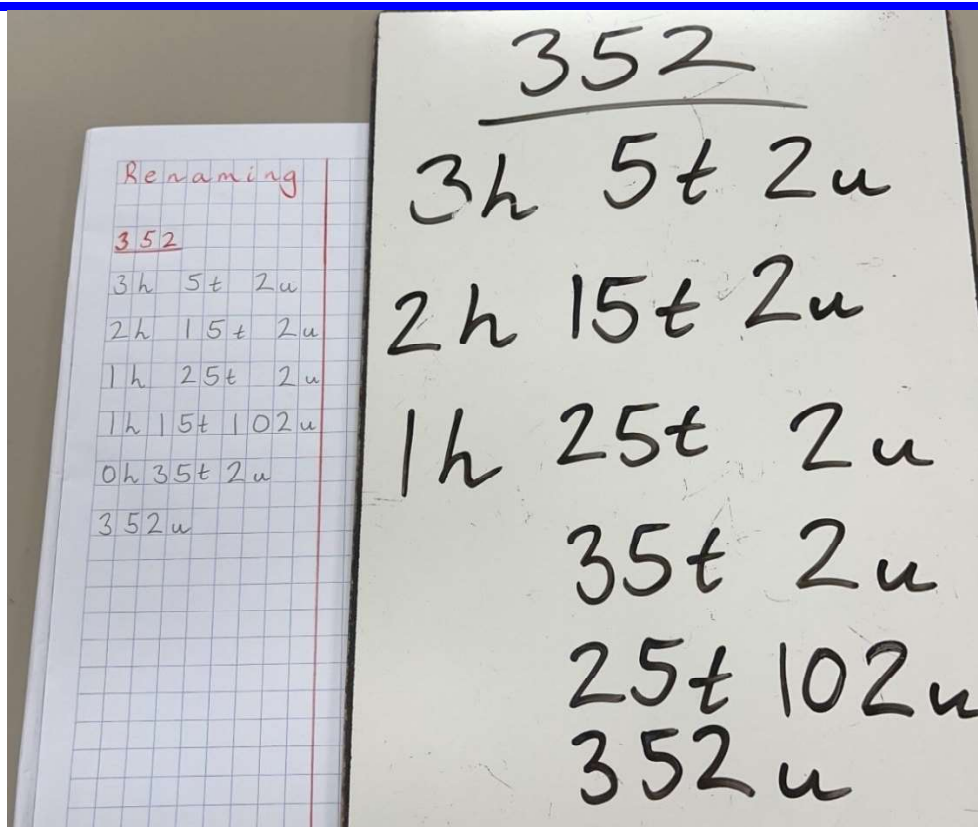 Renaming
352
3h 5t 2u
2h 15t 2u
1h 25t 2u
1h 15t 102u
0h 35t 2u
352u
352
3h 5t 2u
2h 15t 2u
1h 25t 2u
35t 2u
25t 102u
352u